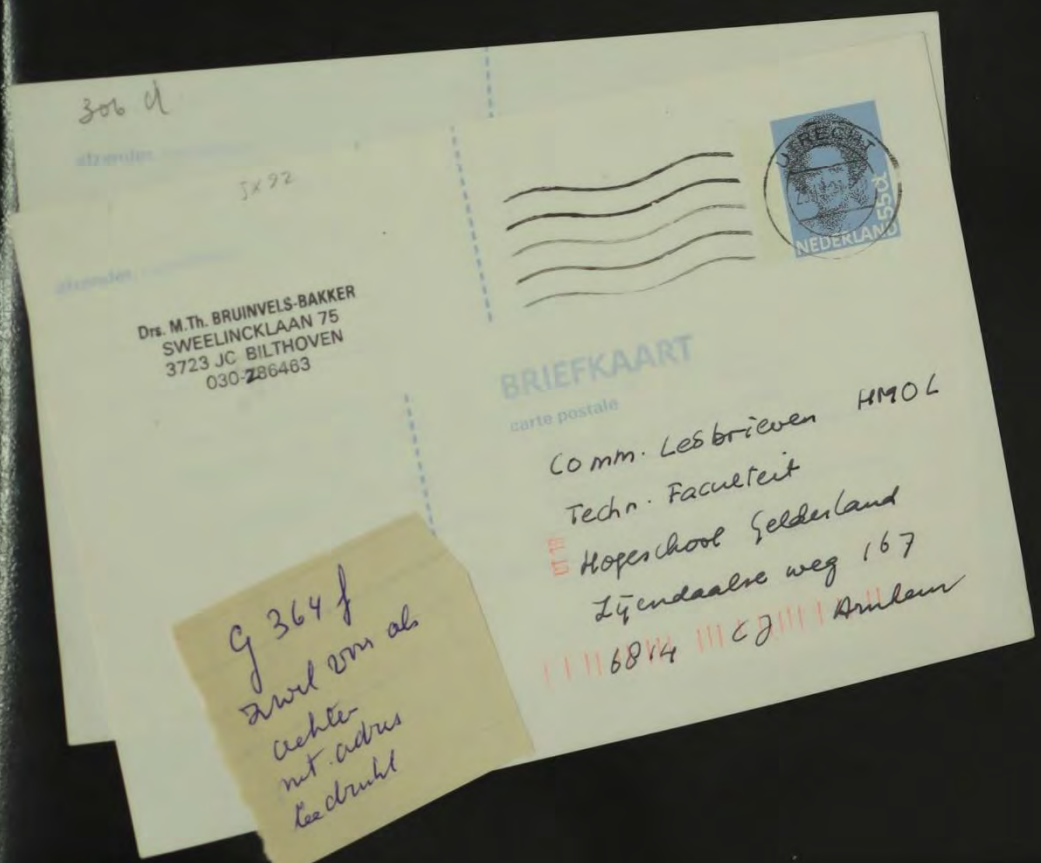 306 d
afzender
IX 92
afzender
Drs. M.Th. BRUINVELS-BAKKER
SWEELINCKLAAN 75
3723 JC BILTHOVEN
030-286463
UTRECHT
55c
NEDERLAND
BRIEFKAART
carte postale
Comm. Lesbrieven HMOL
Techn. Faculteit
Hogeschool Gelderland
Zijendaalse weg 167
6814 CJ Arnhem
G 364 f
zwel voor als
achter
met adres